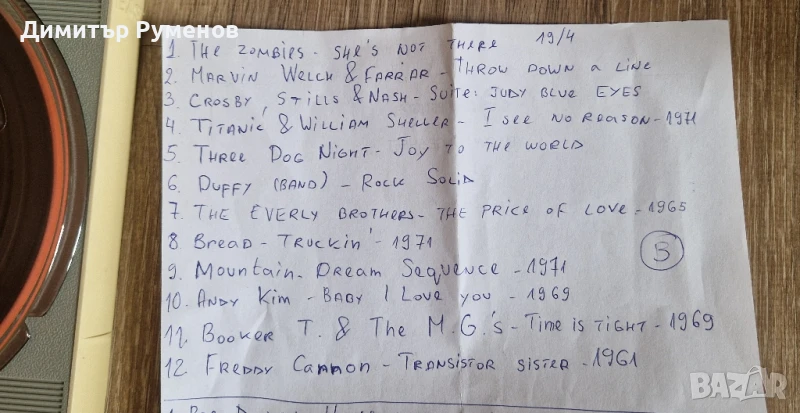 Димитър Руменов
1. THE ZOMBIES - SHE'S NOT THERE 19/4
2. MARVIN WELCH & FARRAR - THROW DOWN A LINE
3. CROSBY, STILLS & NASH - SUITE: JUDY BLUE EYES
4. TITANIC & WILLIAM SHELLER - I SEE NO REASON - 1971
5. THREE DOG NIGHT - JOY TO THE WORLD
6. DUFFY (BAND) - ROCK SOLID
7. THE EVERLY BROTHERS - THE PRICE OF LOVE - 1965
8 Bread - TRUCKIN' - 1971
B
9. Mountain - Dream Sequence - 1971
10. ANDY KIM - BABY I LOVE YOU - 1969
11. BOOKER T. & The M.G.'s - Time is TIGHT - 1969
12 FREDDY CANNON - TRANSISTOR SISTER - 1961
BAZAR